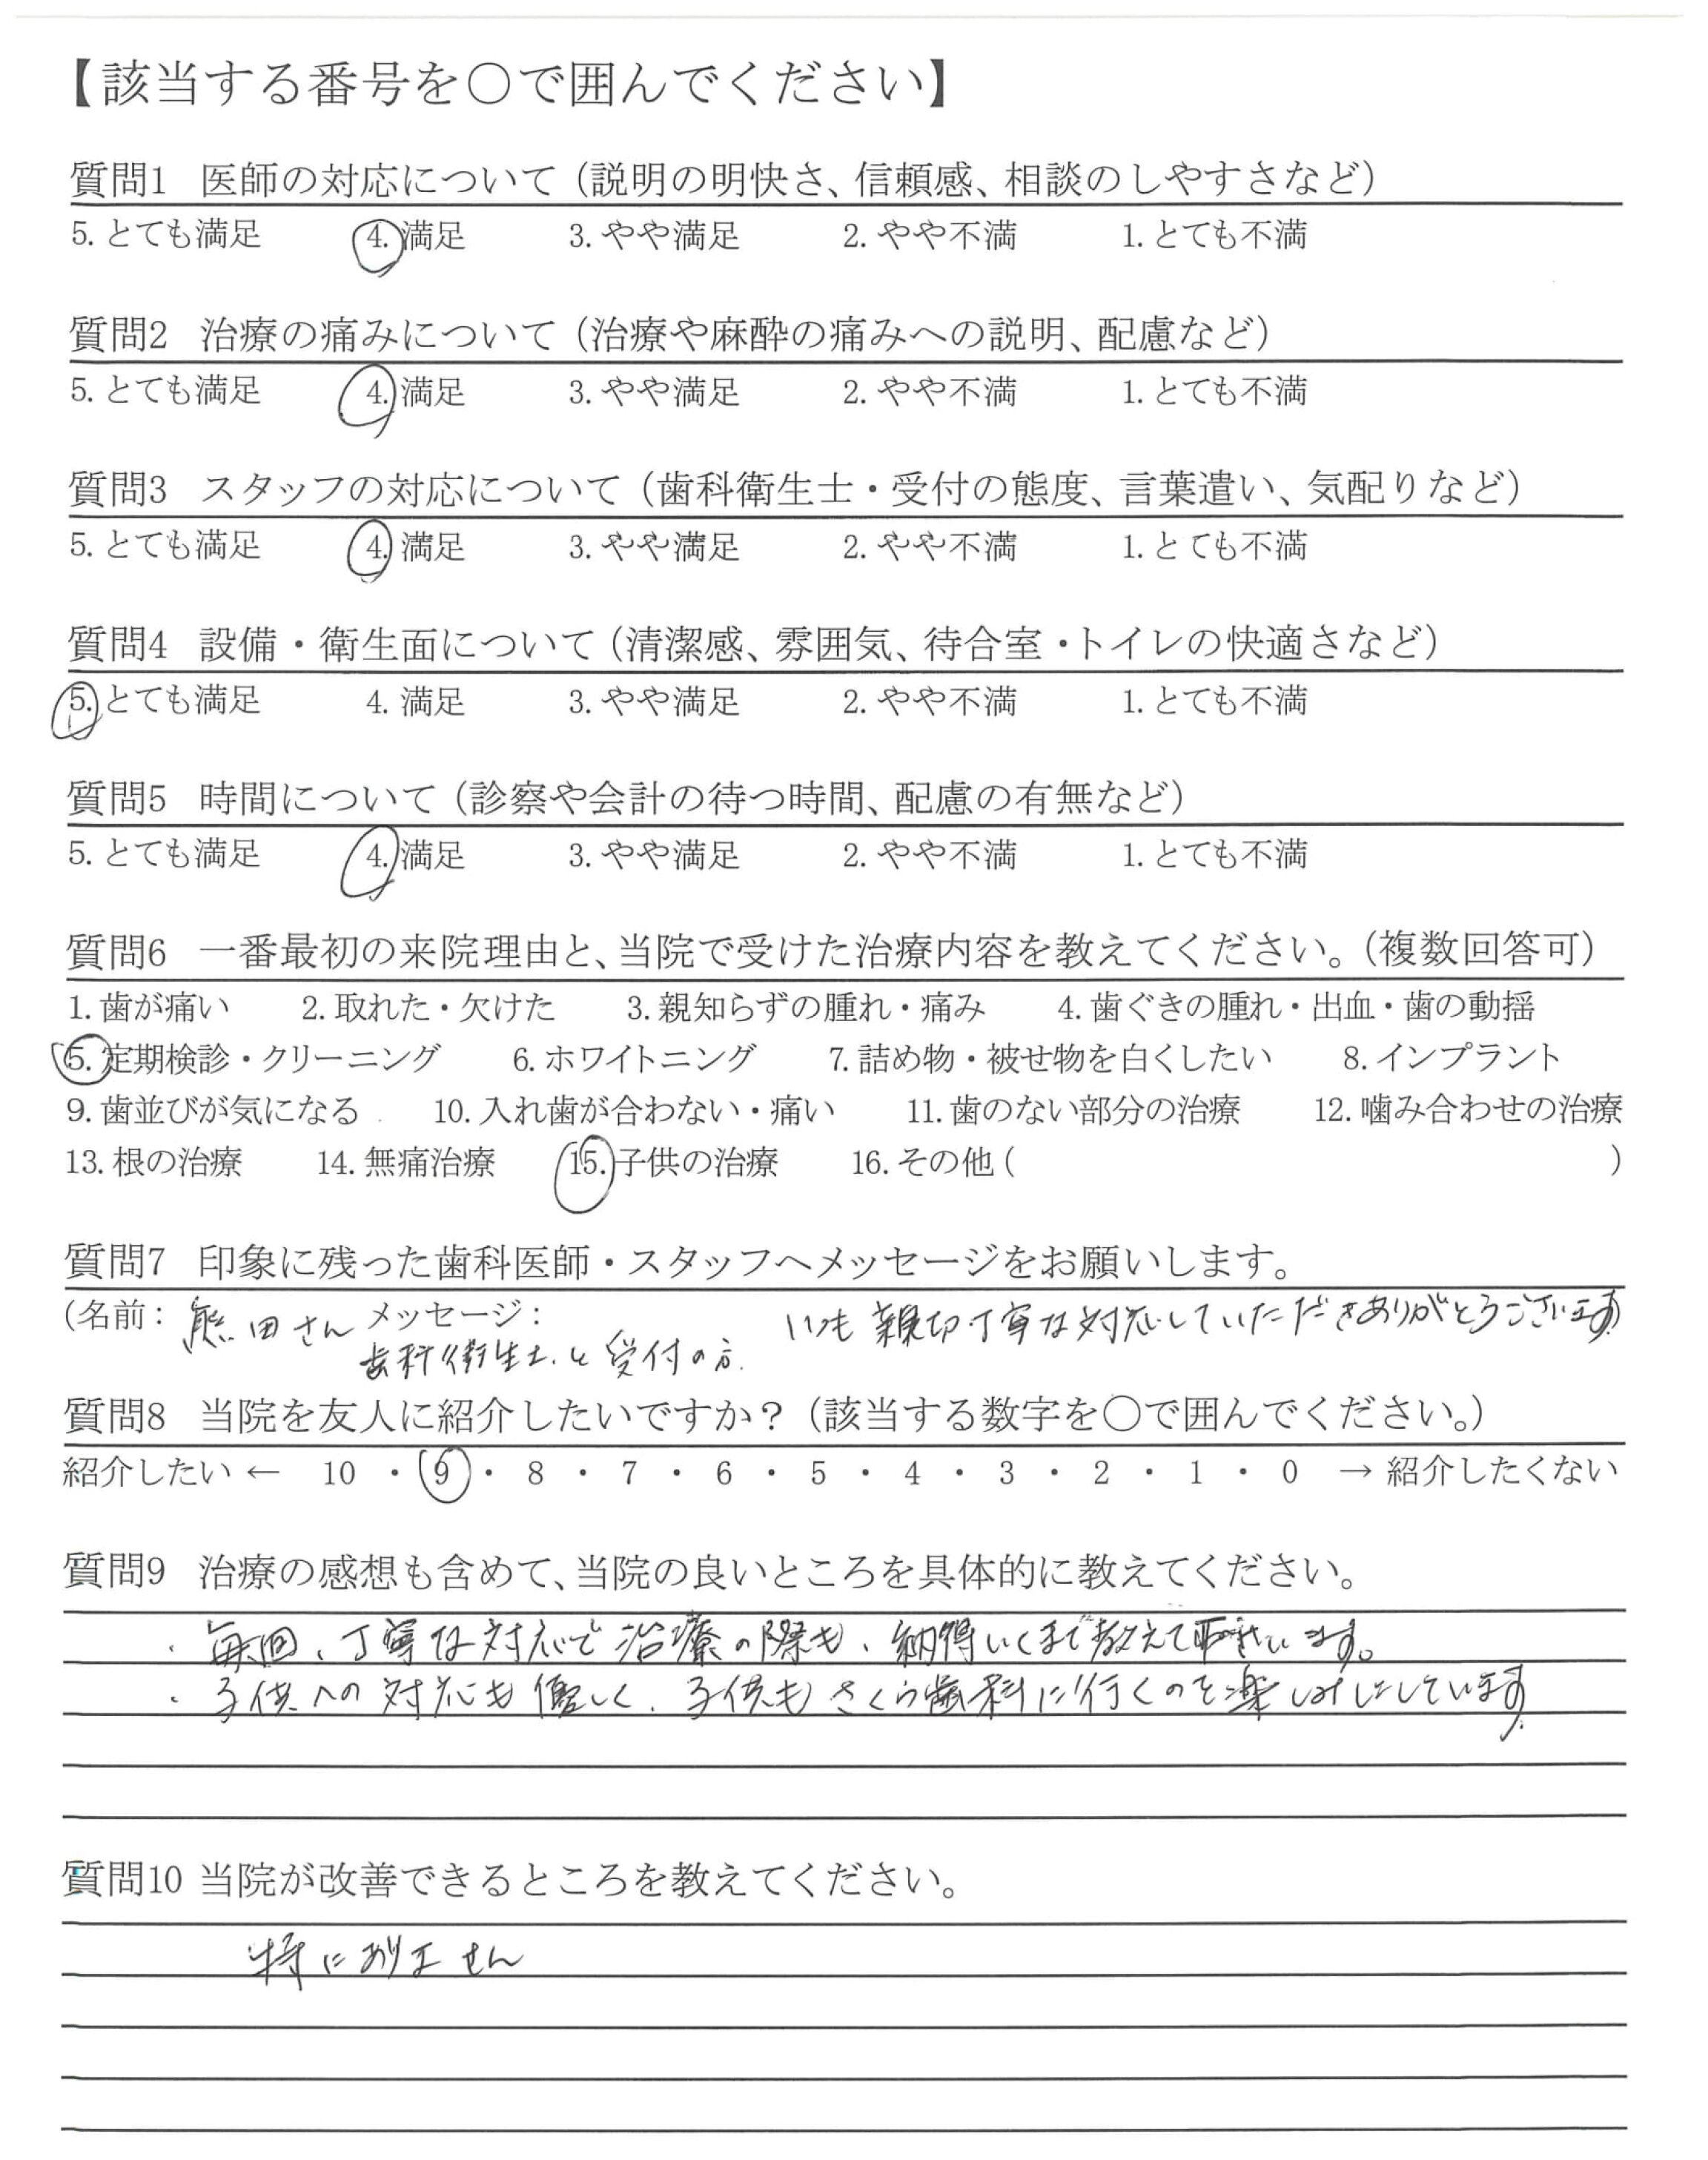 【該当する番号を○で囲んでください】
質問1 医師の対応について（説明の明快さ、信頼感、相談のしやすさなど）
5. とても満足 4. 満足 3. やや満足 2. やや不満 1. とても不満
質問2 治療の痛みについて（治療や麻酔の痛みへの説明、配慮など）
5. とても満足 4. 満足 3. やや満足 2. やや不満 1. とても不満
質問3 スタッフの対応について（歯科衛生士・受付の態度、言葉遣い、気配りなど）
5. とても満足 4. 満足 3. やや満足 2. やや不満 1. とても不満
質問4 設備・衛生面について（清潔感、雰囲気、待合室・トイレの快適さなど）
5. とても満足 4. 満足 3. やや満足 2. やや不満 1. とても不満
質問5 時間について（診察や会計の待つ時間、配慮の有無など）
5. とても満足 4. 満足 3. やや満足 2. やや不満 1. とても不満
質問6 一番最初の来院理由と、当院で受けた治療内容を教えてください。（複数回答可）
1. 歯が痛い 2. 取れた・欠けた 3. 親知らずの腫れ・痛み 4. 歯ぐきの腫れ・出血・歯の動揺
5. 定期検診・クリーニング 6. ホワイトニング 7. 詰め物・被せ物を白くしたい 8. インプラント
9. 歯並びが気になる 10. 入れ歯が合わない・痛い 11. 歯のない部分の治療 12. 噛み合わせの治療
13. 根の治療 14. 無痛治療 15. 子供の治療 16. その他（ ）
質問7 印象に残った歯科医師・スタッフへメッセージをお願いします。
（名前： 熊田さん メッセージ： いつも親切丁寧な対応していただきありがとうございます）
歯科衛生士と受付の方
質問8 当院を友人に紹介したいですか？（該当する数字を○で囲んでください。）
紹介したい ← 10 ・ 9 ・ 8 ・ 7 ・ 6 ・ 5 ・ 4 ・ 3 ・ 2 ・ 1 ・ 0 → 紹介したくない
質問9 治療の感想も含めて、当院の良いところを具体的に教えてください。
・毎回、丁寧な対応で治療の際も、納得いくまで教えて頂けています。
・子供への対応も優しく、子供もさくら歯科に行くのを楽しみにしています
質問10 当院が改善できるところを教えてください。
特にありません